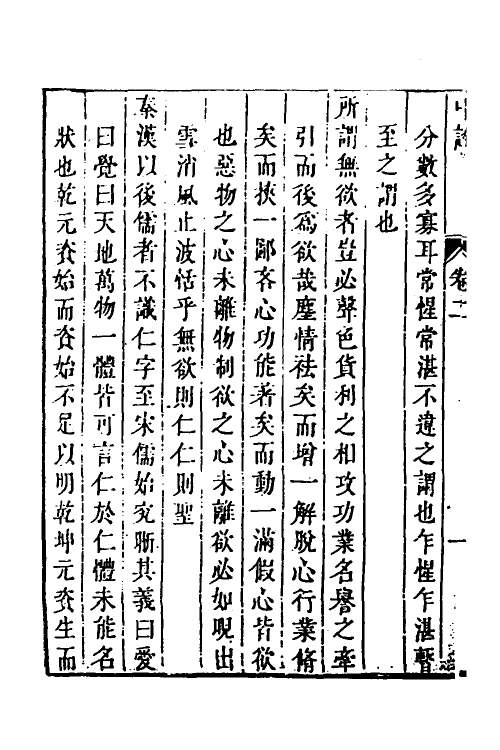 分數多寡耳常惺常湛不違之謂也乍惺乍湛暫
至之謂也
所謂無欲者豈必聲色貨利之相攻功業名譽之牽
引而後爲欲哉塵情祛矣而增一解脫心行業脩
矣而挾一鄙吝心功能著矣而動一滿假心皆欲
也惡物之心未離物制欲之心未離欲必如晛出
雪消風止波恬乎無欲則仁仁則聖
秦漢以後儒者不識仁字至宋儒始究晰其義曰愛
曰覺曰天地萬物一體皆可言仁於仁體未能名
狀也乾元資始而資始不足以明乾坤元資生而
卷二